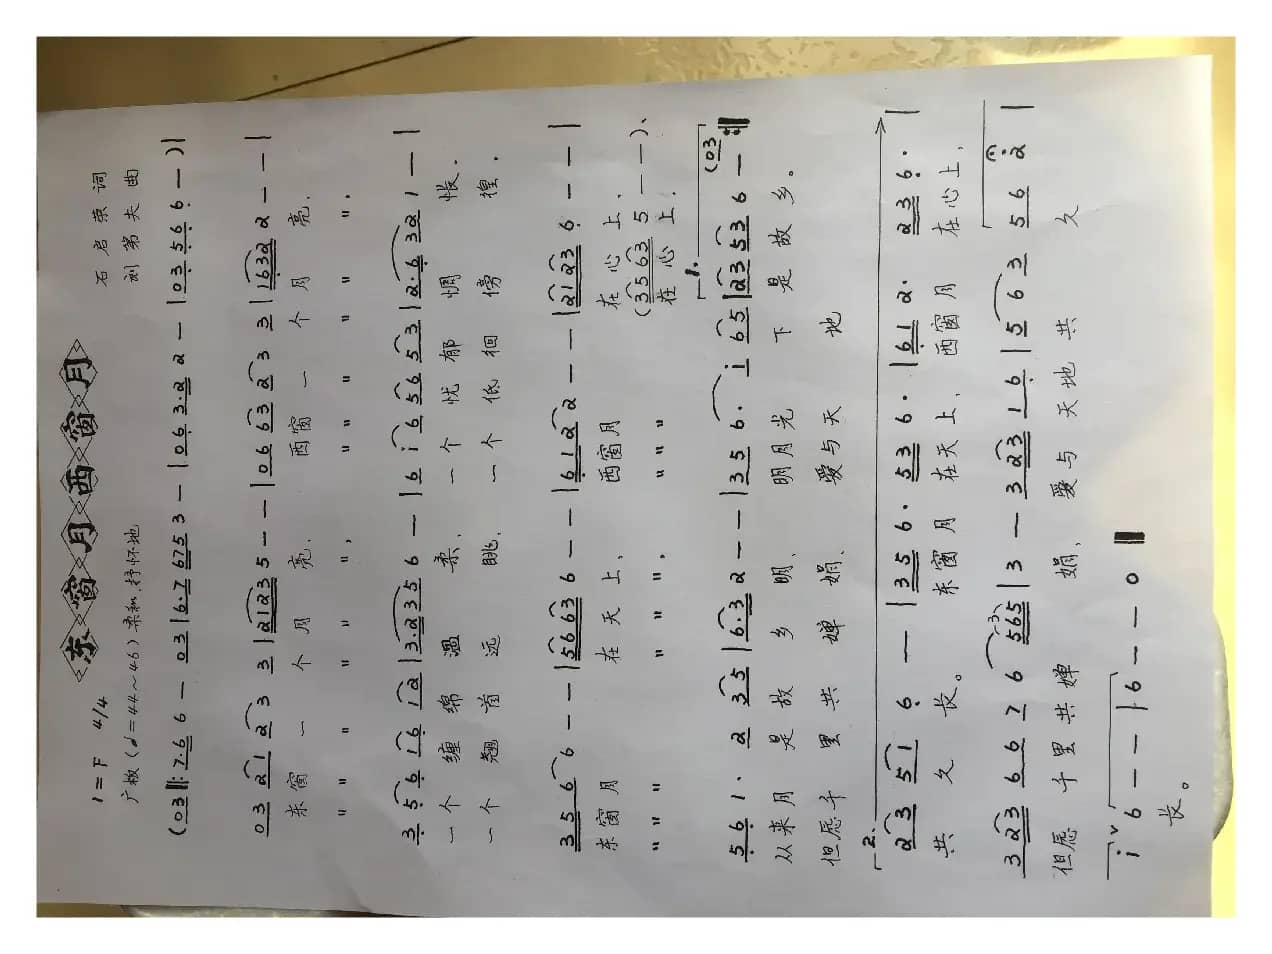 东窗月西窗月
1=F 4/4
石启荣词
广板(♩=44~46)柔和.抒怀地
第夫曲
(03‖:7·6 6 — 03|6·7 6753 — |063·22 — |03566 — )|
03 212 3 3|212 35 — — |06632 3 3|16322 — — |
东窗一个月亮, 西窗一个月亮,
〃 〃 〃 〃 〃 〃, 〃 〃 〃 〃 〃 〃,
3 5 6 16 12|3·2356 — |6 i 6 56 53|2·6 321 — |
一个缠绵温柔, 一个忧郁惆怅.
一个翘首远眺, 一个低徊傍徨.
3566 — — |556636 — — |6122 — — |212236 — — |
东窗月在天上, 西窗月在心上,
(35635 — — )、
〃 〃 〃 〃 〃 〃, 〃 〃 〃 在心上.
1. (03
561· 2 35|6·32 — — |356· i 65|2353 6 — :‖
从来月是故乡明, 明月光下是故乡。
但愿千里共婵娟, 爱与天地
2.
23 51 6 — |356· 536·|612· 236·|
共久长。 东窗月在天上, 西窗月在心上,
323 66 7 6 565|3 — 323 16|5 6 3 5 6 2|
但愿千里共婵娟, 爱与天地共久
i ∨ 6 — — |6 — — 0 ‖
长。